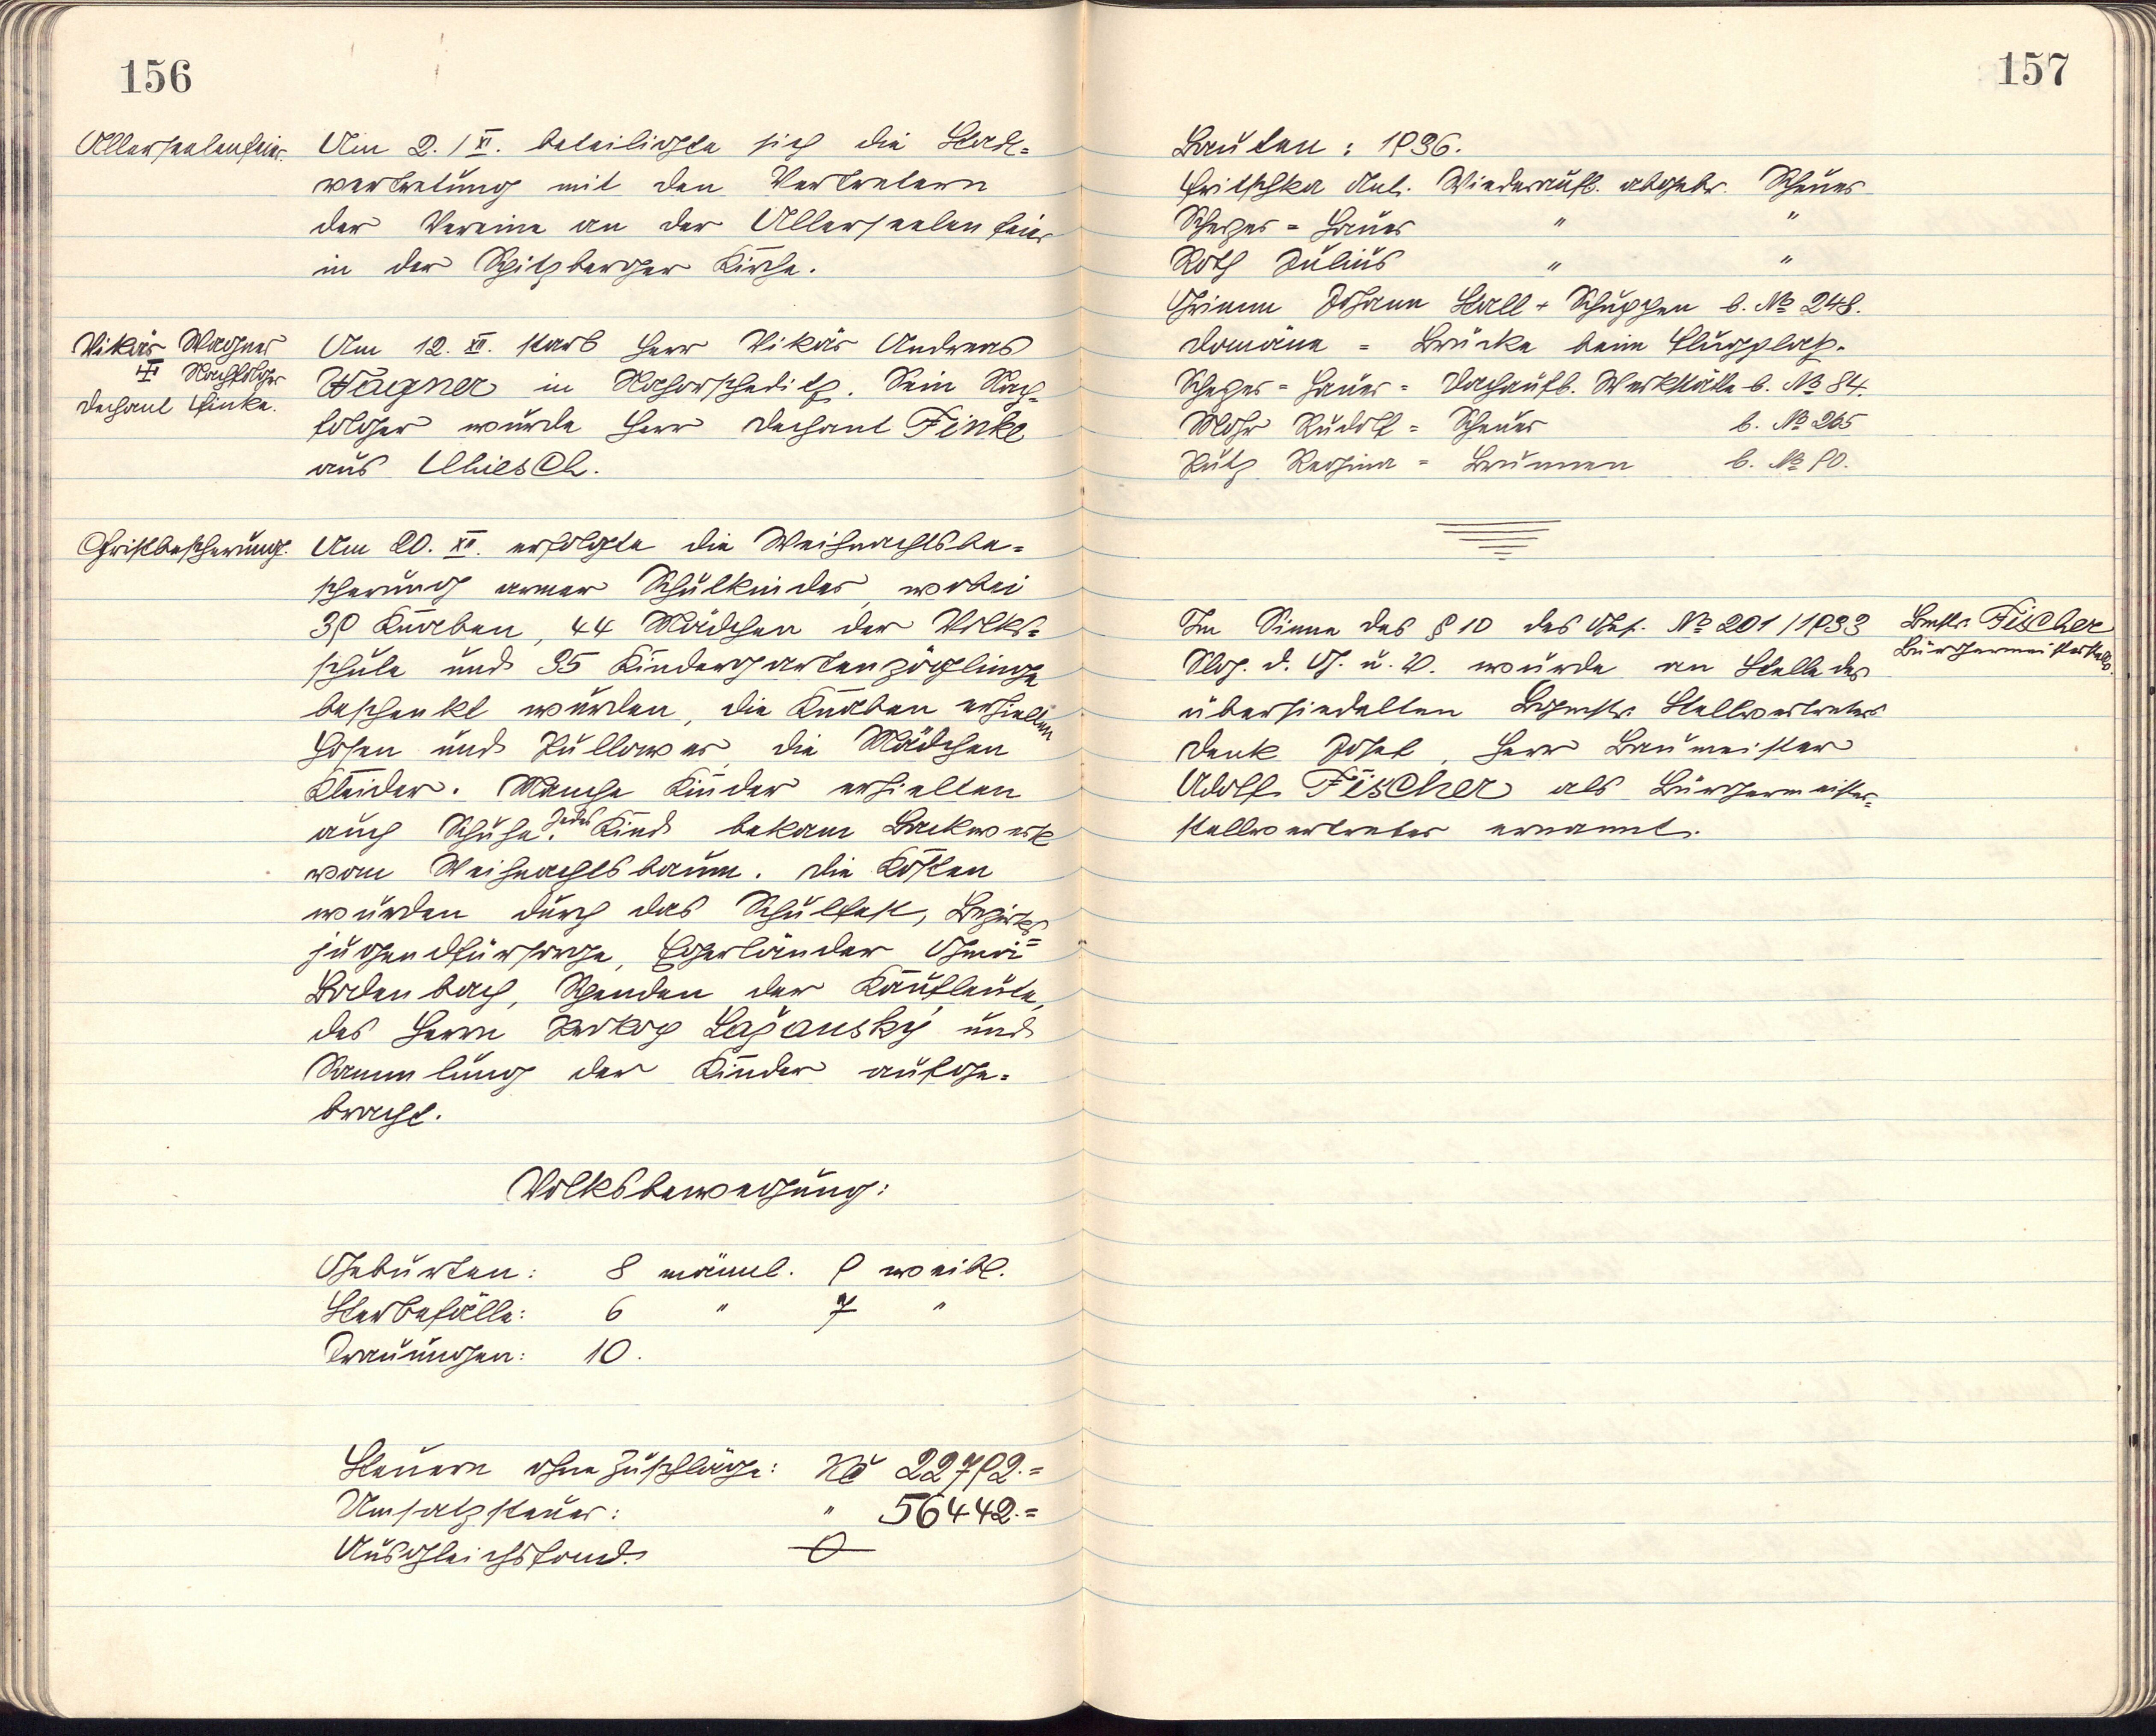 156
Allerseelenfeier.
Am 2./XI. beteiligte sich die Stadt=
vertretung mit den Vertretern
der Vereine an der Allerseelenfeier
in der Spitzberger Kirche.
Vikär Wagner
† Nachfolger
Dechant Finke.
Am 12. XII. starb Herr Vikär Andreas
Wagner in Rahorscheditz. Sein Nach=
folger wurde Herr Dechant Finke
aus Chiesch.
Christbescherung.
Am 20. XII. erfolgte die Weihnachtsbe=
scherung armer Schulkinder, wobei
39 Knaben, 44 Mädchen der Volks=
schule und 35 Kindergartenzöglinge
beschenkt wurden, die Knaben erhielten
Hosen und Pullower, die Mädchen
Kleider. Manche Kinder erhielten
auch Schuhe. Jedes Kind bekam Backwerk
vom Weihnachtsbaum. Die Kosten
wurden durch das Schulfest, Bezirks=
jugendfürsorge, Egerländer Gmoi=
Bodenbach, Spenden der Kaufleute,
des Herrn Prokop Lažanský und
Sammlung der Kinder aufge=
bracht.
Volksbewegung:
Geburten: 8 männl. 9 weibl.
Sterbefälle: 6 " 7 "
Trauungen: 10.
Steuern ohne Zuschläge: Kč 22792.=
Umsatzsteuer: " 56442.=
Ausgleichsfond. 0
157
Bauten: 1936.
Fritschka Ant. Wiederaufb. abgebr. Scheuer
Scherzer = Hauer " "
Roth Julius " "
Grimm Johann Stall + Schuppen b. № 248.
Domäne = Brücke beim Flugplatz.
Scherzer = Hauer = Dachaufb. Werkstätte b. № 84.
Mohr Rudolf = Scheuer b. № 265
Putz Regina = Brunnen b. № 90.
Im Sinne des § 10 des Ges. № 201/1933
Slg. d. G. u. V. wurde an Stelle des
übersiedelten Bgmstr. Stellvertreters
Denk Josef, Herr Baumeister
Adolf Fischer als Bürgermeister=
stellvertreter ernannt.
Bmstr. Fischer
Bürgermeisterstellv.